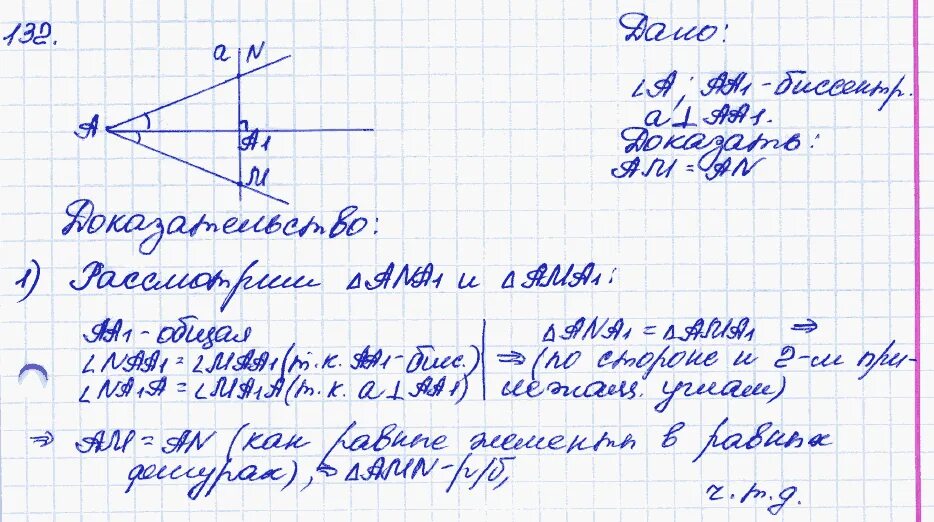 132.
a N
A
A1
M
Дано:
∠A; AA1 - биссектр.
a ⊥ AA1.
Доказать:
AM = AN
Доказательство:
1) Рассмотрим △ANA1 и △AMA1:
AA1 - общая
∠NAA1 = ∠MAA1 (т.к. AA1 - бис.)
∠NA1A = ∠MA1A (т.к. a ⊥ AA1)
⇒
△ANA1 = △AMA1 ⇒
(по стороне и 2-м при-
лежащ. углам)
⇒ AM = AN (как равные элементы в равных
фигурах), ⇒ △AMN - р/б,
ч.т.д.